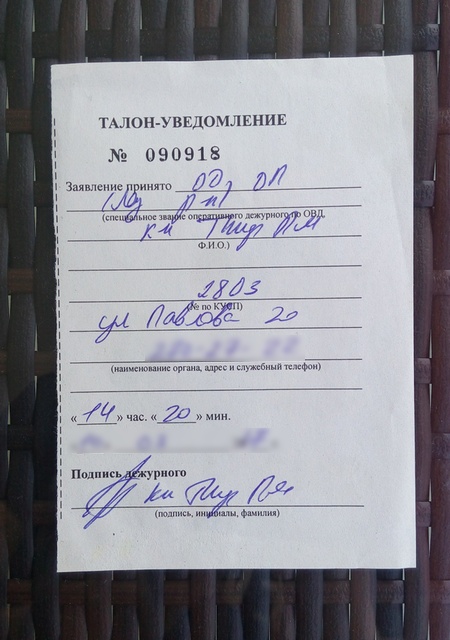 ТАЛОН-УВЕДОМЛЕНИЕ
№ 090918
Заявление принято ОД, ОП
(специальное звание оперативного дежурного по ОВД,
Ф.И.О.)
2803
(№ по КУСП)
ул Павлова 20
(наименование органа, адрес и служебный телефон)
« 14 » час. « 20 » мин.
Подпись дежурного
(подпись, инициалы, фамилия)